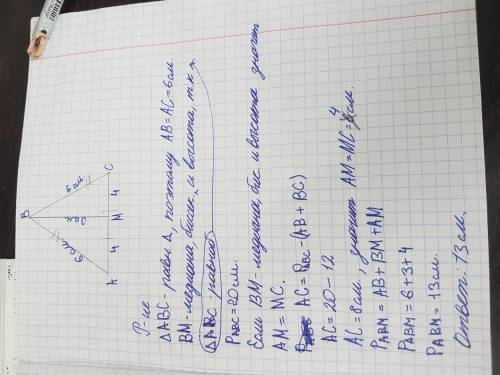 B
6 см
6 см
3 см
4
4
A
M
C
Р-ие
ΔABC - равн Δ, поэтому AB = AC = 6 см
BM - медиана, бисек. и высота, т.к
ΔABC - равноб
PABC = 20 см.
Если BM - медиана, бис. и высота значит
AM = MC.
AC = PABC - (AB + BC)
AC = 20 - 12
AC = 8 см, значит AM = MC = 4 см.
PABM = AB + BM + AM
PABM = 6 + 3 + 4
PABM = 13 см.
Ответ: 13 см.